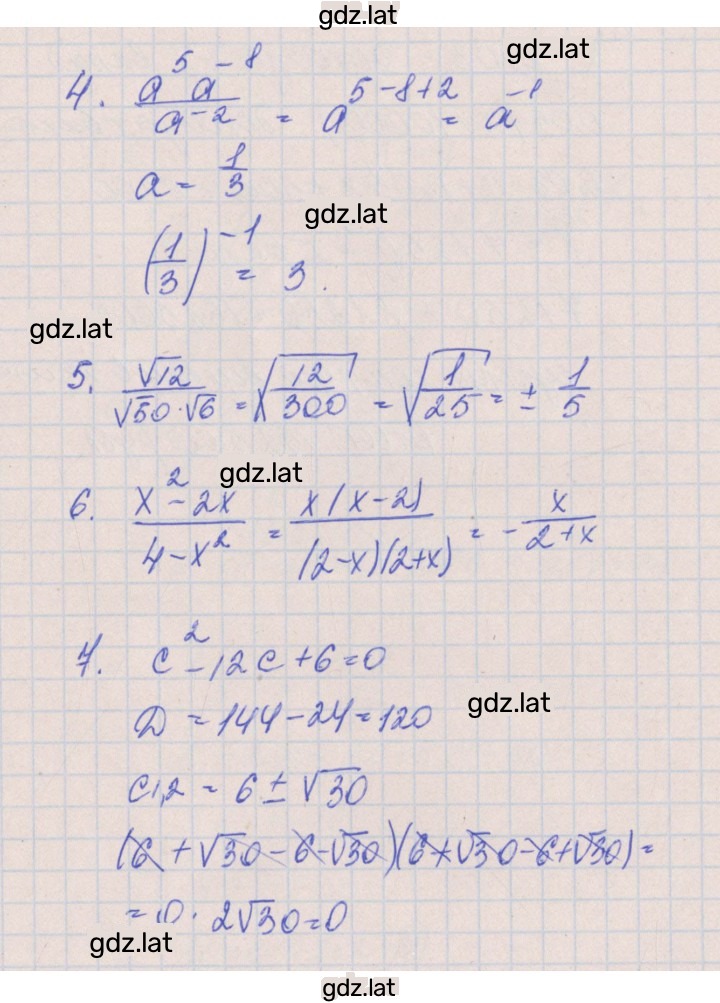 gdz.lat
gdz.lat
4. a^5 a^-8 / a^-2 = a^5-8+2 = a^-1
a = 1/3
gdz.lat
(1/3)^-1 = 3.
gdz.lat
5. √12 / √50·√6 = √12/300 = √1/25 = ± 1/5
gdz.lat
6. x^2-2x / 4-x^2 = x(x-2) / (2-x)(2+x) = - x / 2+x
7. c^2-12c+6=0
gdz.lat
D = 144-24=120
c1,2 = 6 ± √30
(6 + √30 - 6 - √30)(6+√30-6+√30) =
= 0 · 2√30=0
gdz.lat
gdz.lat